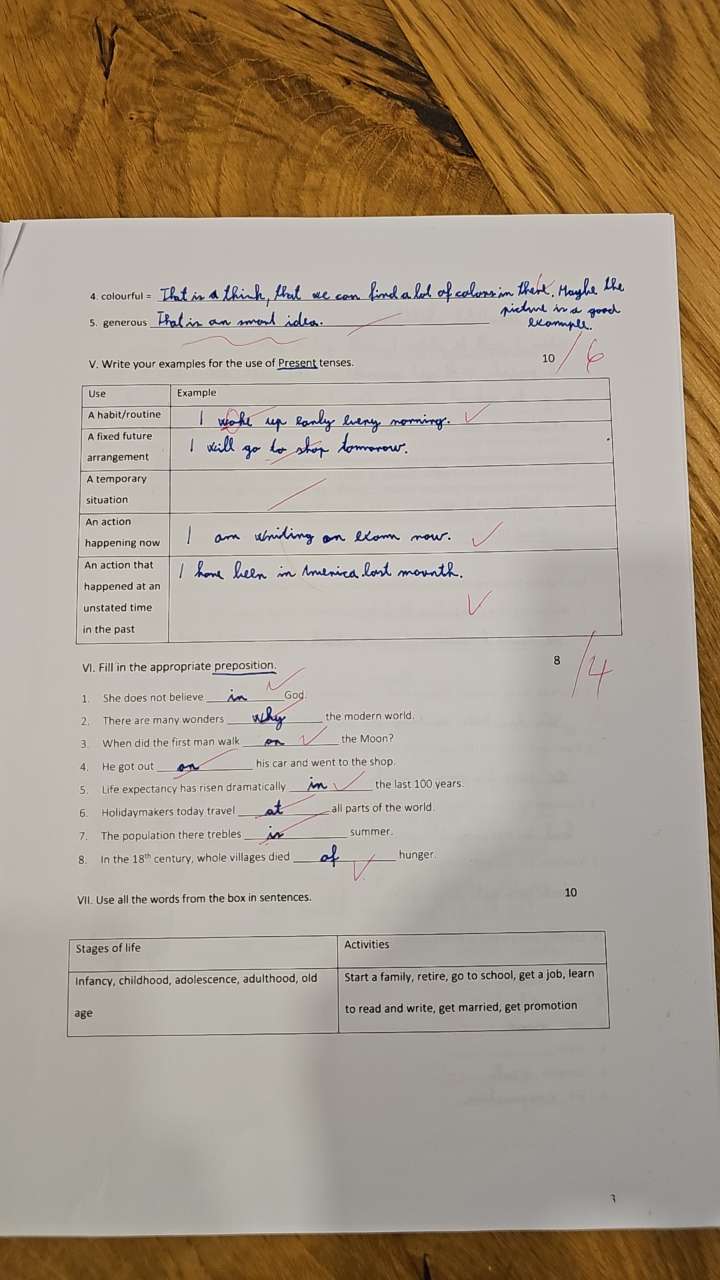 4. colourful = That is a think, that we can find a lot of colors in there. Maybe the
picture is a good
example.
5. generous That is an smart idea.
V. Write your examples for the use of Present tenses. 10 /6
Use Example
A habit/routine I woke up early every morning.
A fixed future
arrangement I will go to shop tomorow.
A temporary
situation
An action
happening now I am writing an exam now.
An action that
happened at an
unstated time
in the past I have been in America last mounth.
VI. Fill in the appropriate preposition. 8 /4
1. She does not believe in God.
2. There are many wonders why the modern world.
3. When did the first man walk on the Moon?
4. He got out on his car and went to the shop.
5. Life expectancy has risen dramatically in the last 100 years.
6. Holidaymakers today travel at all parts of the world.
7. The population there trebles in summer.
8. In the 18th century, whole villages died of hunger.
VII. Use all the words from the box in sentences. 10
Stages of life Activities
Infancy, childhood, adolescence, adulthood, old
age
Start a family, retire, go to school, get a job, learn
to read and write, get married, get promotion
3